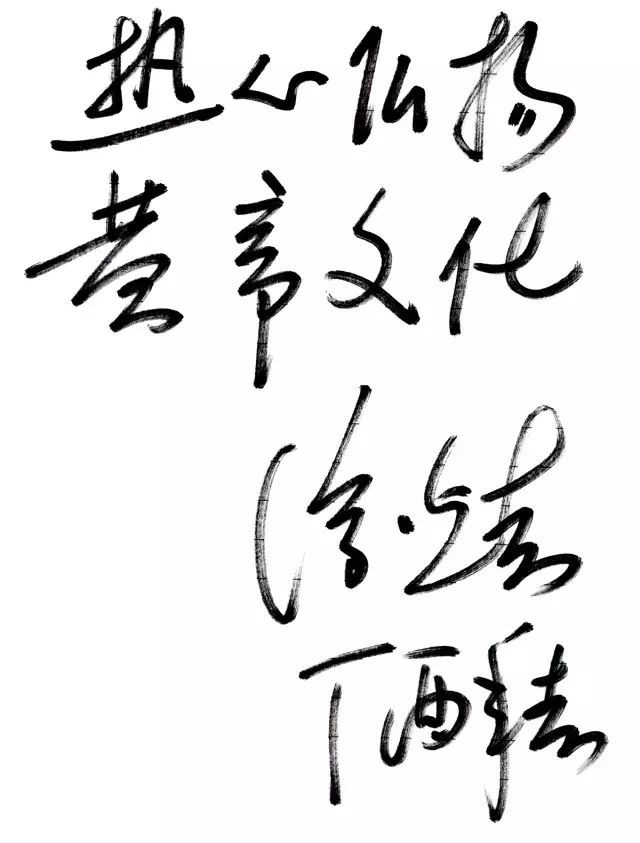 热心弘扬
黄帝文化
徐光春
丁酉年春